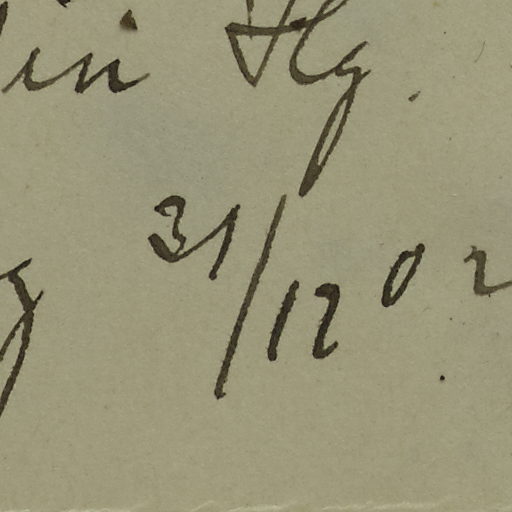 in Hg.
31/12 02